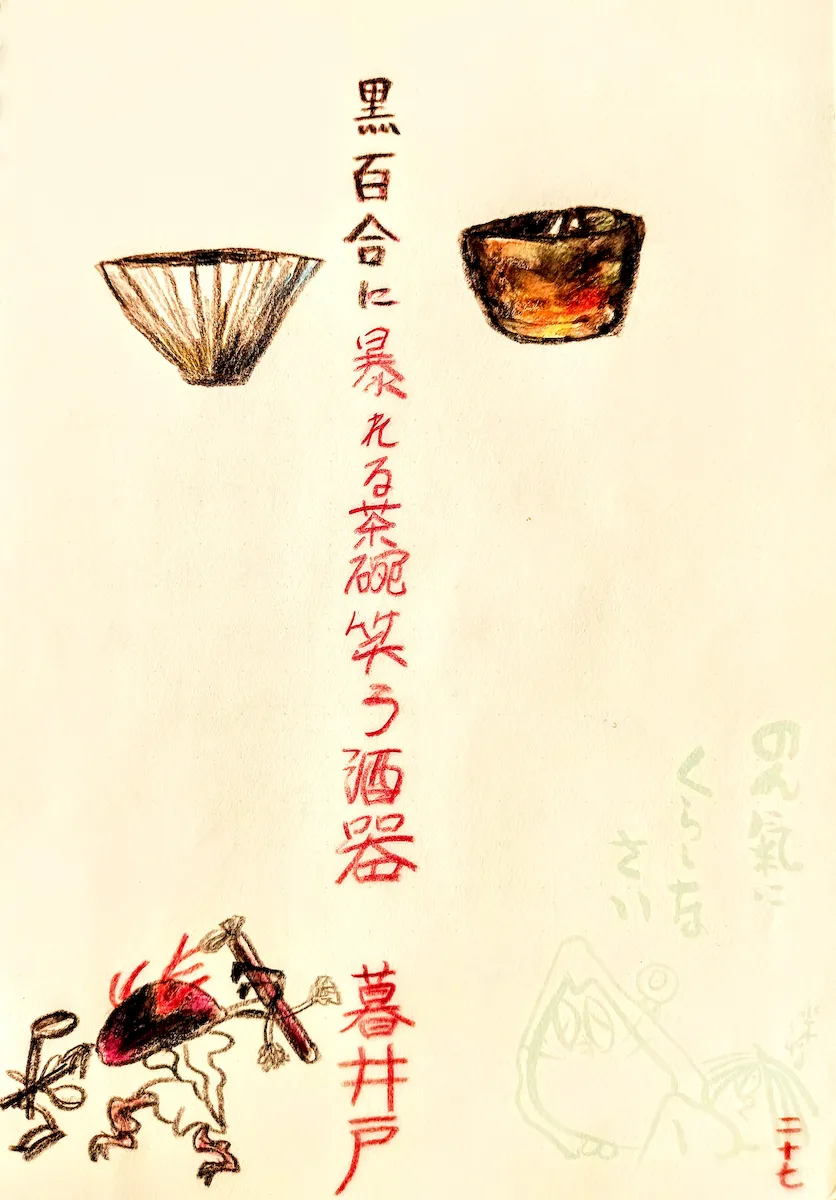 黒百合に暴れる茶碗笑う酒器 暮井戸
のん氣に
くらしな
さい
二十七